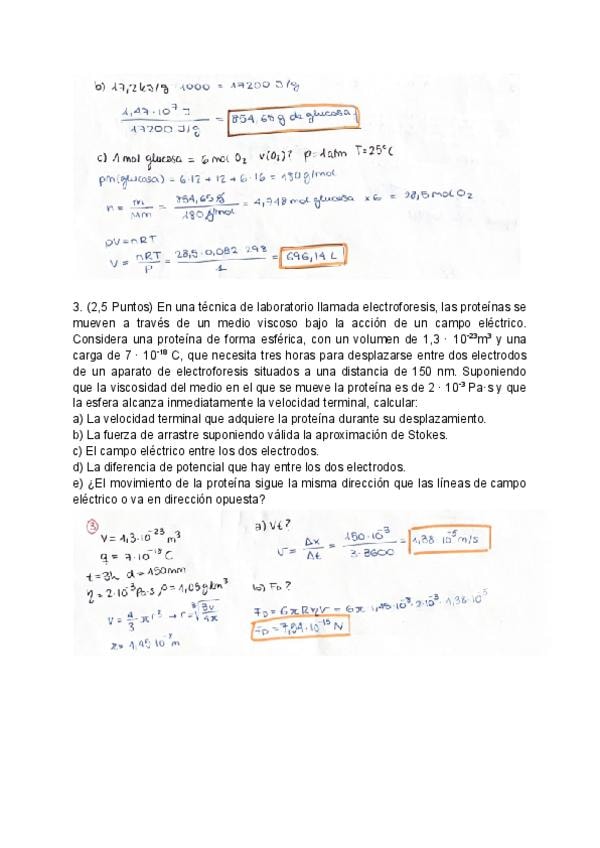 b) 17,2kJ/g · 1000 = 17200 J/g
1,47·10⁷ J / 17200 J/g = 854,65 g de glucosa
c) 1 mol glucosa = 6 mol O₂ V(O₂)? p=1atm T=25°C
pm(glucosa) = 6·12 + 12 + 6·16 = 180g/mol
n = m/Mm = 854,65 g / 180g/mol = 4,748 mol glucosa x6 = 28,5 mol O₂
pV=nRT
V = nRT/P = 28,5·0,082·298 / 1 = 696,14 L
3. (2,5 Puntos) En una técnica de laboratorio llamada electroforesis, las proteínas se
mueven a través de un medio viscoso bajo la acción de un campo eléctrico.
Considera una proteína de forma esférica, con un volumen de 1,3 · 10⁻²³m³ y una
carga de 7 · 10⁻¹⁸ C, que necesita tres horas para desplazarse entre dos electrodos
de un aparato de electroforesis situados a una distancia de 150 nm. Suponiendo
que la viscosidad del medio en el que se mueve la proteína es de 2 · 10⁻³ Pa·s y que
la esfera alcanza inmediatamente la velocidad terminal, calcular:
a) La velocidad terminal que adquiere la proteína durante su desplazamiento.
b) La fuerza de arrastre suponiendo válida la aproximación de Stokes.
c) El campo eléctrico entre los dos electrodos.
d) La diferencia de potencial que hay entre los dos electrodos.
e) ¿El movimiento de la proteína sigue la misma dirección que las líneas de campo
eléctrico o va en dirección opuesta?
③
V = 1,3·10⁻²³ m³
q = 7·10⁻¹⁸ C
t=3h d=150mm
η = 2·10⁻³Pa·s, ρ=1,05g/cm³
V = 4/3 · πr³ → r = ³√3V/4π
r = 1,45·10⁻⁷ m
a) Vt?
v = Δx/Δt = 150·10⁻³ / 3·3600 = 1,38·10⁻⁵ m/s
b) F_D?
F_D = 6πRηV = 6π · 1,45·10⁻⁸ · 2·10⁻³ · 1,38·10⁻⁵
F_D = 7,84·10⁻¹⁵ N